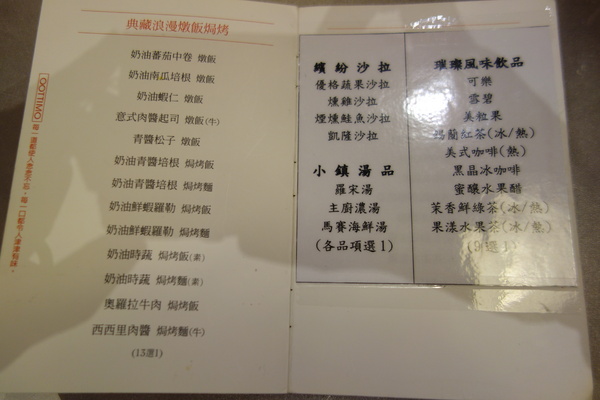 典藏浪漫燉飯焗烤
奶油蕃茄中卷 燉飯
奶油南瓜培根 燉飯
奶油蝦仁 燉飯
意式肉醬起司 燉飯(牛)
青醬松子 燉飯
奶油青醬培根 焗烤飯
奶油青醬培根 焗烤麵
奶油鮮蝦羅勒 焗烤飯
奶油鮮蝦羅勒 焗烤麵
奶油時蔬 焗烤飯(素)
奶油時蔬 焗烤麵(素)
奧羅拉牛肉 焗烤飯
西西里肉醬 焗烤麵(牛)
(13選1)
繽紛沙拉
優格蔬果沙拉
燻雞沙拉
煙燻鮭魚沙拉
凱薩沙拉
小鎮湯品
羅宋湯
主廚濃湯
馬賽海鮮湯
(各品項選1)
璀璨風味飲品
可樂
雪碧
美粒果
錫蘭紅茶(冰/熱)
美式咖啡(熱)
黑晶冰咖啡
蜜釀水果醋
茉香鮮綠茶(冰/熱)
果漾水果茶(冰/熱)
(9選1)